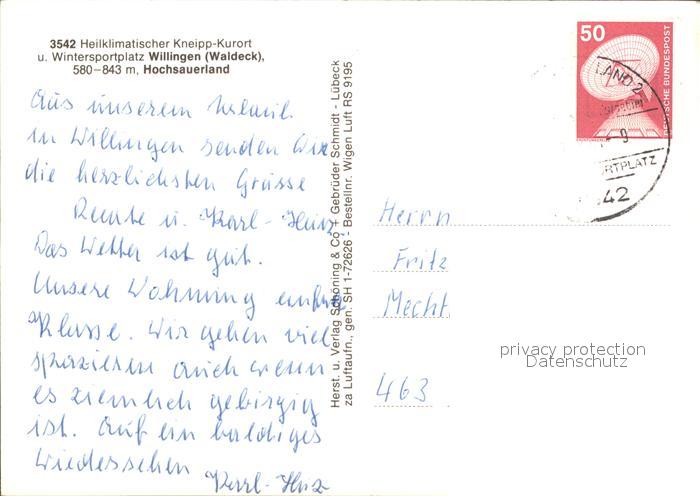 3542 Heilklimatischer Kneipp-Kurort
u. Wintersportplatz Willingen (Waldeck),
580–843 m, Hochsauerland
Aus unserem
in Willingen senden wir
die herzlichsten Grüsse
Renate u. Karl-Heinz
Das Wetter ist gut.
Unsere Wohnung einfach
Klasse. Wir gehen viel
spazieren auch wenn
es ziemlich gebirgig
ist. Auf ein baldiges
Wiedersehen
Karl-Heinz
Herst. u. Verlag Schöning & Co + Gebrüder Schmidt - Lübeck
za Luftaufn., gen. SH 1-72626 - Bestellnr. Wigen Luft RS 9195
50
DEUTSCHE BUNDESPOST
LAND 2
RTPLATZ
42
Herrn
Fritz
Mecht
463
privacy protection
Datenschutz